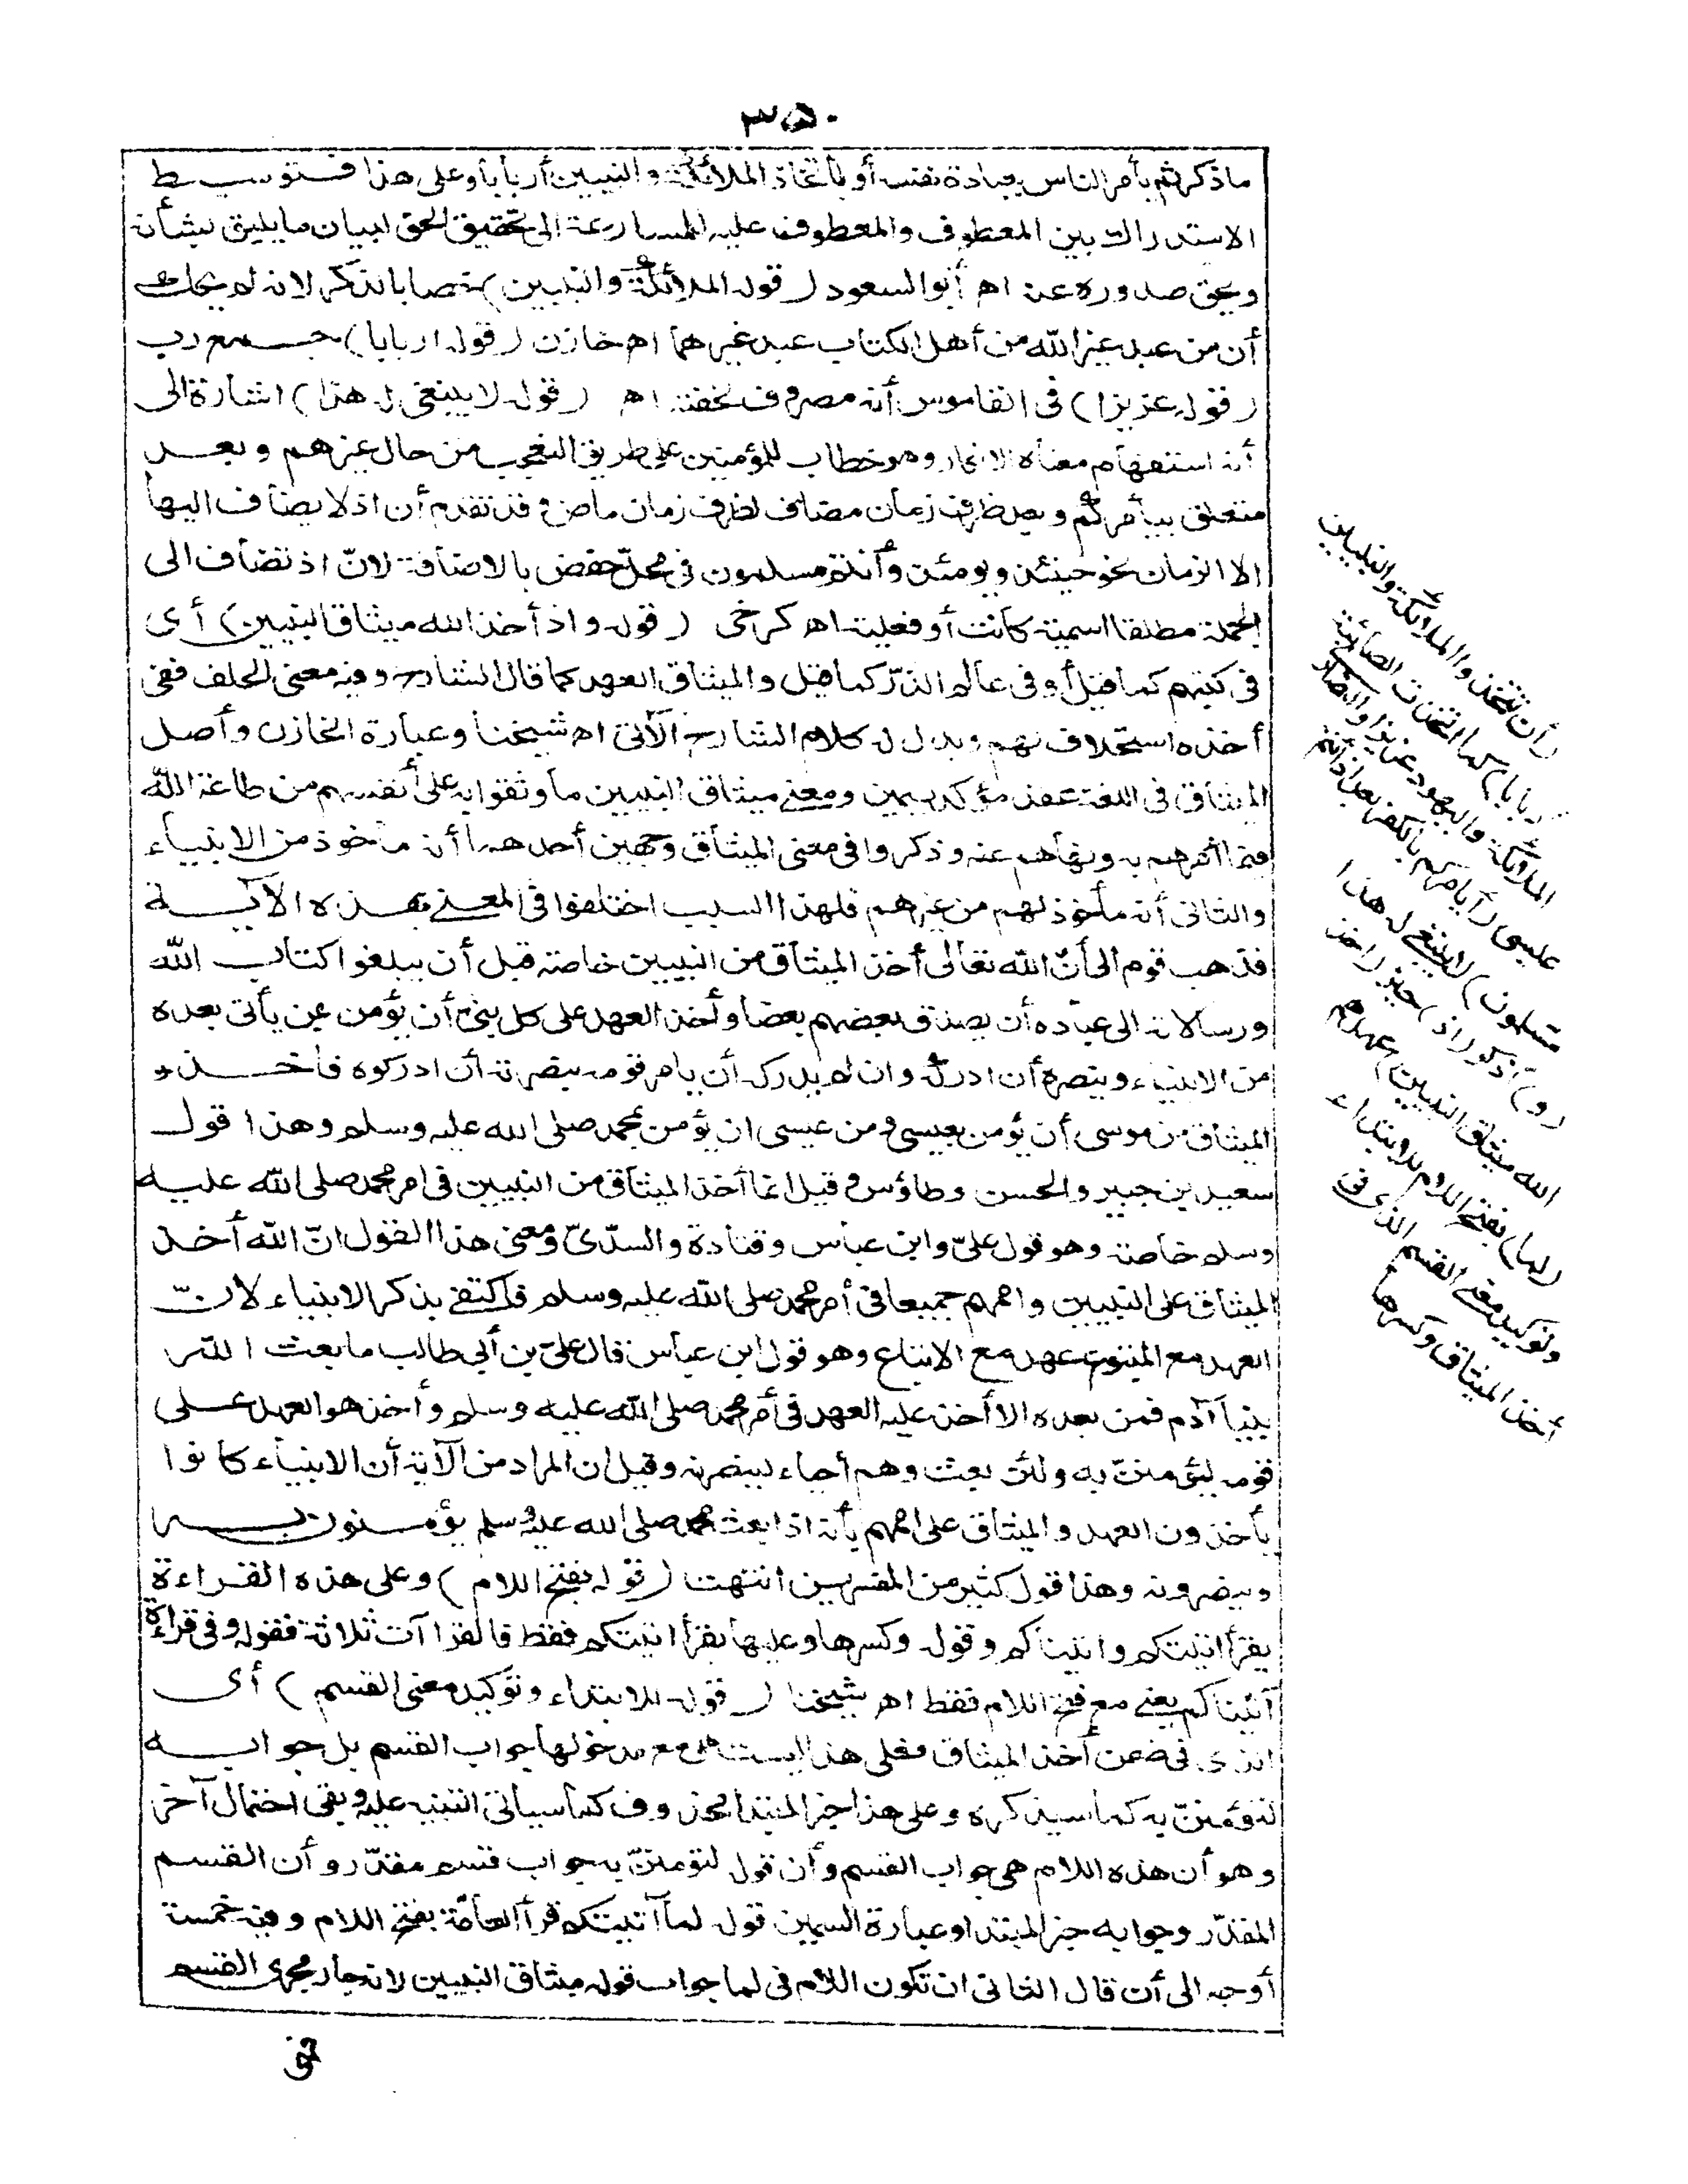 ٣٥٠
ما ذكر ثم يأمر الناس بعبادة نفسه أو باتخاذ الملائكة والنبيين أربابا وعلى هذا فتوسيط
الاستدراك بين المعطوف والمعطوف عليه للمسارعة الى تحقيق الحق لبيان ما يليق بشأنه
ويحق صدوره عنه اه أبو السعود (قوله الملائكة والنبيين) خصا بالذكر لانه لم يحك
أن من عبد غير الله من أهل الكتاب عبد غيرهما اه خازن (قوله اربابا) جمع رب
(قوله عزيزا) فى القاموس أنه مصروف لخفته اه (قوله لا ينبغى له هذا) اشارة الى
أنه استفهام معناه الانكار وهو خطاب للمؤمنين على طريق التعجب من حال غيرهم وبعد
متعلق بيأمركم وبعد ظرف زمان مضاف لظرف زمان ماض وقد تقدم أن اذ لا يضاف اليها
الا الزمان نحو حينئذ ويومئذ وأنتم مسلمون فى محل خفض بالاضافة لانّ اذ تضاف الى
الجملة مطلقا اسمية كانت أو فعلية اه كرخى (قوله واذ أخذ الله ميثاق النبيين) أى
فى كتبهم كما قيل أو فى عالم الذرّ كما قيل والميثاق العهد كما قال الشارح وفيه معنى الحلف ففى
أخذه استحلاف لهم ويدل له كلام الشارح الآتى اه شيخنا وعبارة الخازن وأصل
الميثاق فى اللغة عقد مؤكد بيمين ومعنى ميثاق النبيين ما وثقوا به على أنفسهم من طاعة الله
فيما أمرهم به ونهاهم عنه وذكروا فى معنى الميثاق وجهين أحدهما أنه مأخوذ من الانبياء
والثانى أنه مأخوذ لهم من غيرهم فلهذا السبب اختلفوا فى المعنى بهذه الآية
فذهب قوم الى أنّ الله تعالى أخذ الميثاق من النبيين خاصة قبل أن يبلغوا كتاب الله
ورسالاته الى عباده أن يصدق بعضهم بعضا وأخذ العهد على كل نبىّ أن يؤمن بمن يأتى بعده
من الانبياء وينصره أن ادركه وان لم يدركه أن يامر قومه بنصرته أن ادركوه فأخذ
الميثاق من موسى أن يؤمن بعيسى ومن عيسى ان يؤمن بمحمد صلى الله عليه وسلم وهذا قول
سعيد بن جبير والحسن وطاؤس وقيل انما أخذ الميثاق من النبيين فى امر محمد صلى الله عليه
وسلم خاصة وهو قول علىّ وابن عباس وقتادة والسدّىّ ومعنى هذا القول انّ الله أخذ
الميثاق على النبيين واممهم جميعا فى أمر محمد صلى الله عليه وسلم فاكتفى بذكر الانبياء لانّ
العهد مع المتبوع عهد مع الاتباع وهو قول ابن عباس قال علىّ بن أبى طالب ما بعث الله
نبيا آدم فمن بعده الا أخذ عليه العهد فى أمر محمد صلى الله عليه وسلم وأخذ هو العهد على
قومه ليؤمننّ به ولئن بعث وهم أحياء لينصرنه وقيل ان المراد من الآية أن الانبياء كانوا
يأخذون العهد والميثاق على اممهم بأنه اذا بعث محمد صلى الله عليه وسلم يؤمنون به
وينصرونه وهذا قول كثير من المفسرين انتهت (قوله بفتح اللام) وعلى هذه القراءة
يقرأ اتيتكم واتيناكم وقوله وكسرها وعليها يقرأ اتيتكم فقط فالقراآت ثلاثة فقوله وفى قراءة
آتيناكم يعنى مع فتح اللام فقط اه شيخنا (قوله للابتداء وتوكيد معنى القسم) أى
الذى فى ضمن أخذ الميثاق فعلى هذا ليست مع مدخولها جواب القسم بل جوابه
لتؤمننّ به كما سيذكره وعلى هذا خبر المبتدا محذوف كما سيأتى التنبيه عليه وبقى احتمال آخر
وهو أن هذه اللام هى جواب القسم وأن قوله لتؤمننّ به جواب قسم مقدّر وأن القسم
المقدّر وجوابه خبر المبتدا وعبارة السمين قوله لما آتيتكم قرأ العامّة بفتح اللام وفيه خمسة
أوجه الى أن قال الثانى ان تكون اللام فى لما جواب قوله ميثاق النبيين لانه جار مجرى القسم
(أن تتخذوا الملائكة والنبيين
أربابا) كما اتخذت الصابئة
الملائكة واليهود عزيرا والنصارى
عيسى (أيأمركم بالكفر بعد اذ أنتم
مسلمون) لا ينبغى له هذا
(و) اذكر (اذ) حين (اخذ
الله ميثاق النبيين) عهدهم
(لما) بفتح اللام للابتداء
وتوكيد معنى القسم الذى فى
أخذ الميثاق وكسرها